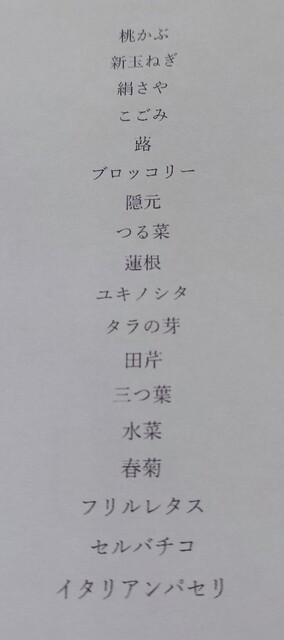 桃かぶ
新玉ねぎ
絹さや
こごみ
蕗
ブロッコリー
隠元
つる菜
蓮根
ユキノシタ
タラの芽
田芹
三つ葉
水菜
春菊
フリルレタス
セルバチコ
イタリアンパセリ